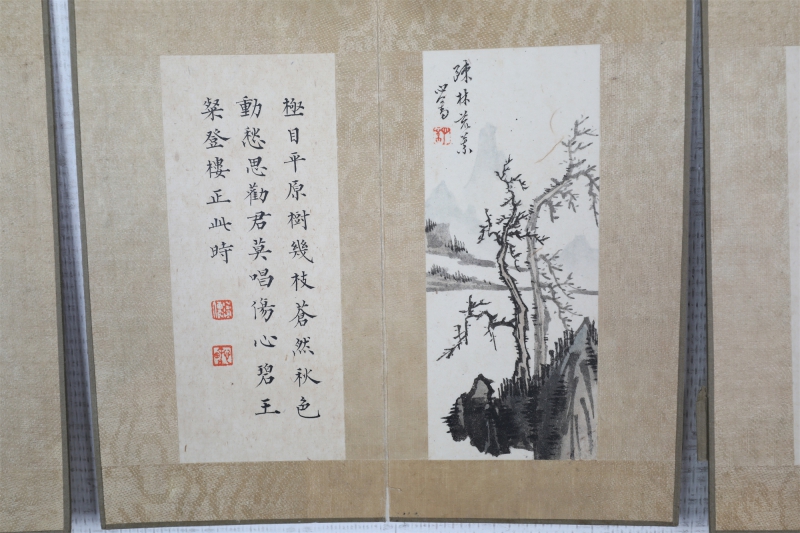 疎林荒
心畬
極目平原樹幾枝蒼然秋色
動愁思勸君莫唱傷心碧王
粲登樓正此時